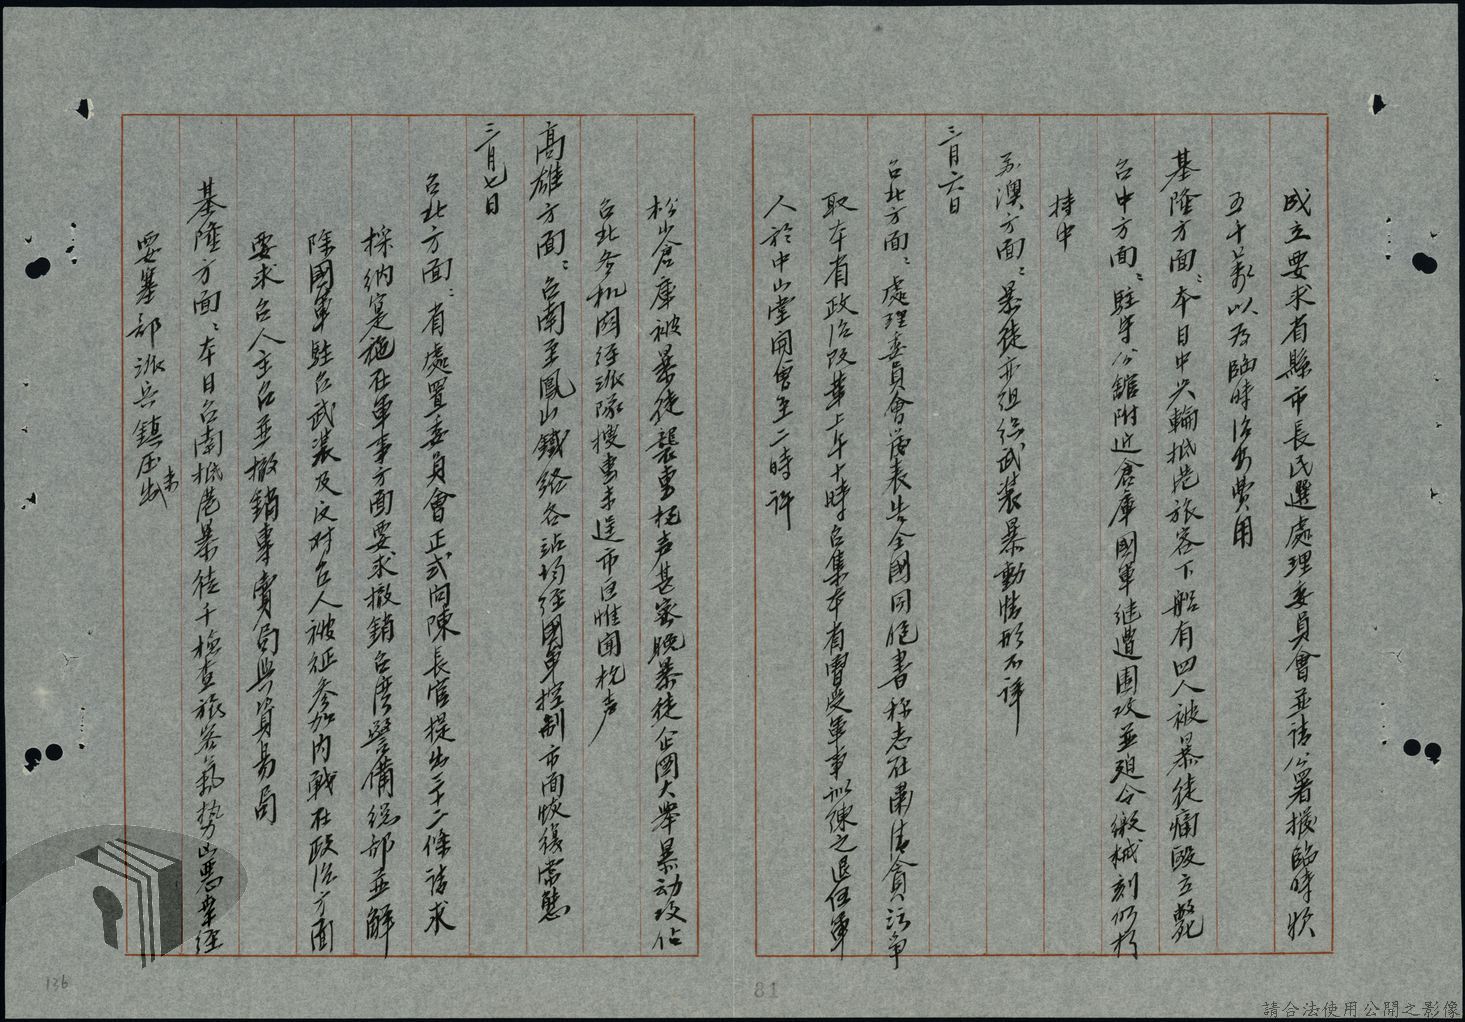 成立要求省縣市長民選處理委員會並請公署撥臨時狀
五十萬以為臨時治安費用
基隆方面：本日中興輪抵港旅客下船有四人被暴徒痛毆立斃
台中方面：駐軍公館附近倉庫國軍繼遭圍攻並迫令繳械刻仍在
持中
蘇澳方面：暴徒亦組織武裝暴動情形不詳
三月六日
台北方面：處理委員會發表告全國同胞書称志在肅清貪污爭
取本省政治改革上午十時召集本省曾受軍事訓練之退伍軍
人於中山堂開會至二時許
松山倉庫被暴徒襲擊槍声甚密晚暴徒企圖大舉暴动攻佔
台北各机関經派隊搜擊未逞市區惟聞槍声
高雄方面：台南至鳳山鐵路各站均經國軍控制市面恢復常態
三月七日
台北方面：有處置委員會正式向陳長官提出三十二條請求
採納寔施在軍事方面要求撤銷台灣警備總部並解
除國軍駐台武裝及反対台人被征参加內戰在政治方面
要求台人主台並撤銷專賣局與貿易局
基隆方面：本日台南抵港暴徒千檢查旅客氣势凶惡業經
要塞部派兵鎮压出
未
136
81
請合法使用公開之影像